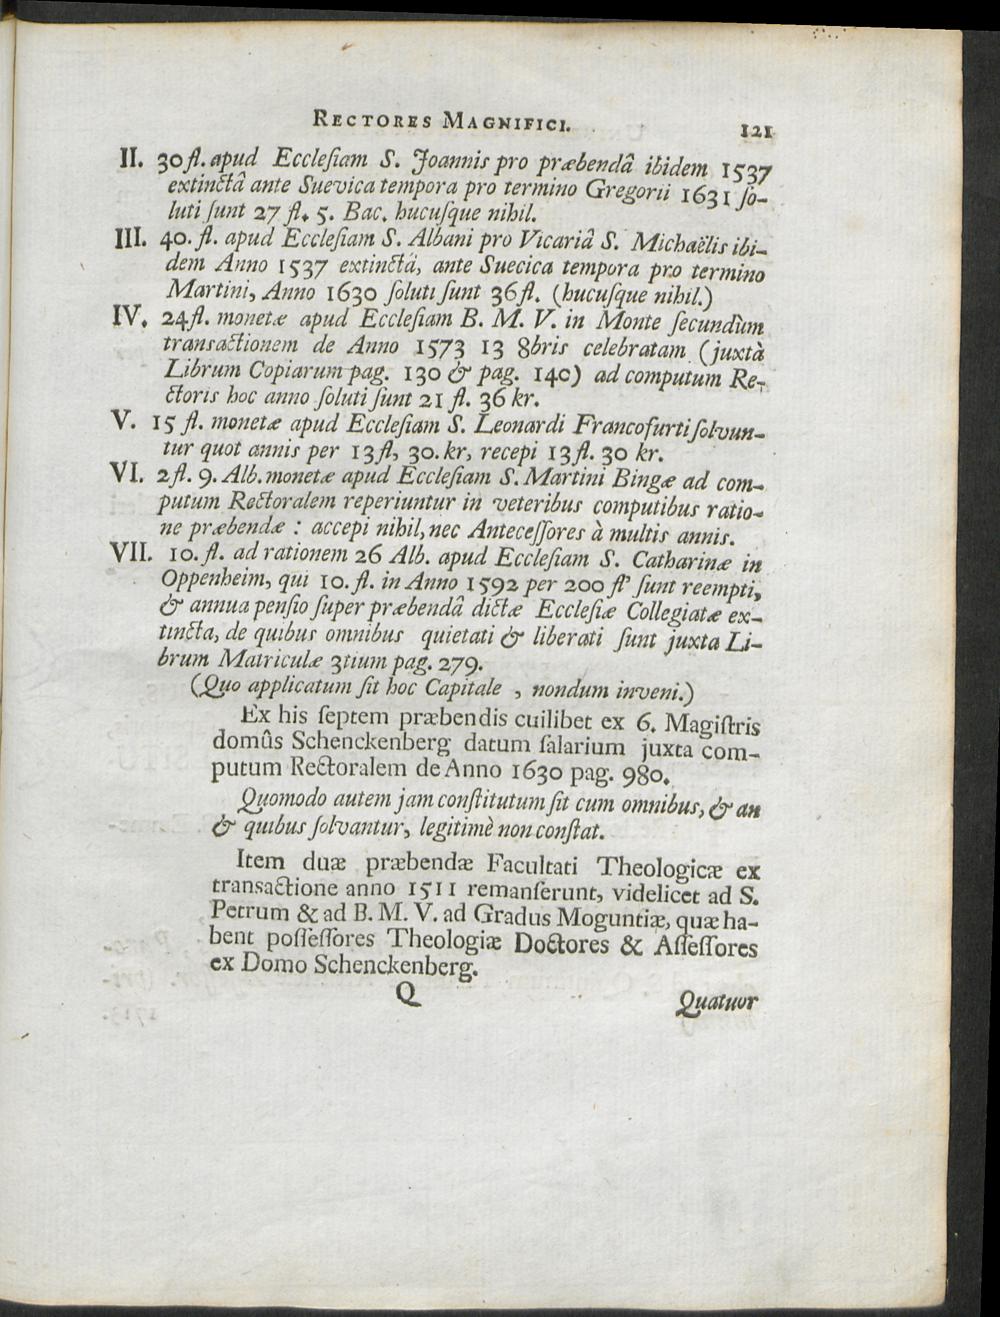 RECTORES MAGNIFICI. 121
II. 30 fl. apud Ecclesiam S. Joannis pro præbendâ ibidem 1537
extinctâ ante Suevica tempora pro termino Gregorii 1631 so-
luti sunt 27 fl. 5. Bac. hucusque nihil.
III. 40. fl. apud Ecclesiam S. Albani pro Vicariâ S. Michaëlis ibi-
dem Anno 1537 extinctâ, ante Suecica tempora pro termino
Martini, Anno 1630 soluti sunt 36 fl. (hucusque nihil.)
IV. 24 fl. monetæ apud Ecclesiam B. M. V. in Monte secundùm
transactionem de Anno 1573 13 8bris celebratam (juxtà
Librum Copiarum pag. 130 & pag. 140) ad computum Re-
ctoris hoc anno soluti sunt 21 fl. 36 kr.
V. 15 fl. monetæ apud Ecclesiam S. Leonardi Francofurti solvun-
tur quot annis per 13 fl, 30. kr, recepi 13 fl. 30 kr.
VI. 2 fl. 9. Alb. monetæ apud Ecclesiam S. Martini Bingæ ad com-
putum Rectoralem reperiuntur in veteribus computibus ratio-
ne præbendæ : accepi nihil, nec Antecessores à multis annis.
VII. 10. fl. ad rationem 26 Alb. apud Ecclesiam S. Catharinæ in
Oppenheim, qui 10. fl. in Anno 1592 per 200 fl' sunt reempti,
& annua pensio super præbendâ dictæ Ecclesiæ Collegiatæ ex-
tincta, de quibus omnibus quietati & liberati sunt juxta Li-
brum Matriculæ 3tium pag. 279.
(Quo applicatum sit hoc Capitale , nondum inveni.)
Ex his septem præbendis cuilibet ex 6. Magistris
domûs Schenckenberg datum salarium juxta com-
putum Rectoralem de Anno 1630 pag. 980.
Quomodo autem jam constitutum sit cum omnibus, & an
& quibus solvantur, legitimè non constat.
Item duæ præbendæ Facultati Theologicæ ex
transactione anno 1511 remanserunt, videlicet ad S.
Petrum & ad B. M. V. ad Gradus Moguntiæ, quæ ha-
bent possessores Theologiæ Doctores & Assessores
ex Domo Schenckenberg.
Q Quatuor